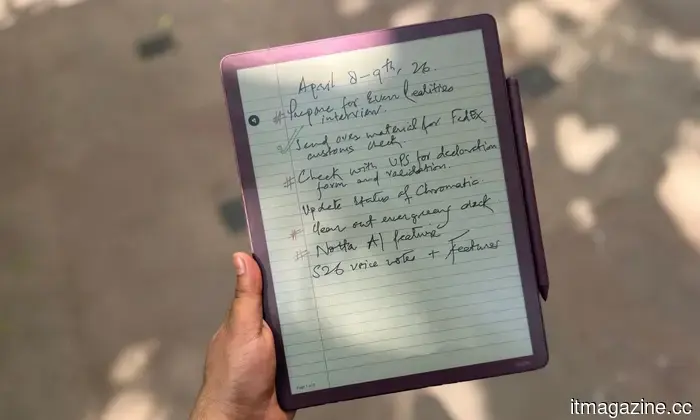 April 8-9th, 26.
# Prepare for Even Realities
interview.
Send over material for FedEx
customs check
# Check with UPS for declaration
form and validation.
Update status of Chromatic
# Clear out evergreens deck
# Notta AI feature
S26 voice notes + Features
Page 1 of 2
itmagazine.cc